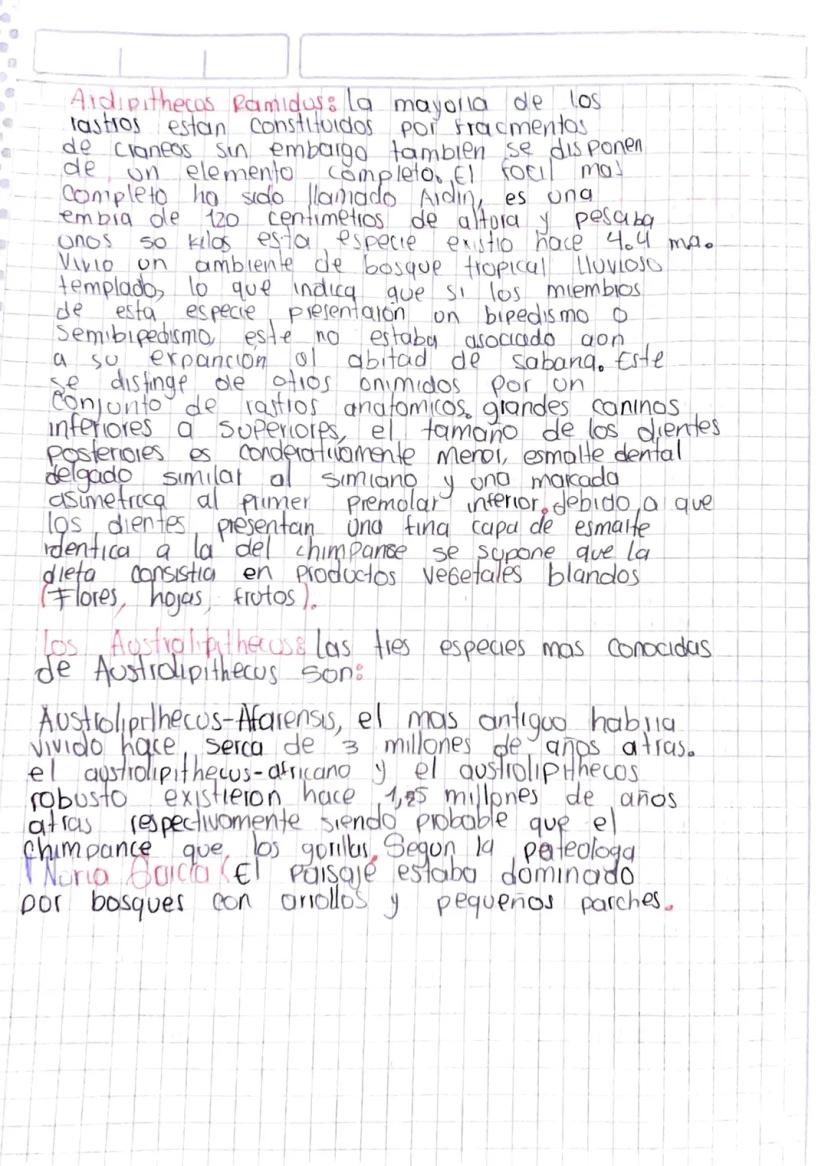 Ardipithecos Ramidus: la mayoria de los
rastros estan constituidos por fracmentos
de craneos sin embargo tambien se disponen
de un elemento completo. El focil mas
completo ha sido llamado Ardin, es una
embra de 120 centimetros de altora y pesaba
unos 50 kilos esta especie existio hace 4.4 ma.
Vivio un ambiente de bosque tropical lluvioso
templado, lo que indica que si los miembros
de esta especie presentaron un bipedismo o
semibipedismo este no estaba asociado aon
a su expancion al abitad de sabana. Este
se distinge de otros onimidos por un
conjunto de rastros anatomicos. grandes caninos
inferiores a superiores, el tamaño de los dientes
posteriores es conderativamente menor, esmalte dental
delgado similar al simiano y una marcada
asimetrica al primer premolar inferior. debido a que
los dientes presentan una fina capa de esmalte
identica a la del chimpanse se supone que la
dieta consistia en productos vegetales blandos
(Flores, hojas, frutos).
los Australipithecus: Las tres especies mas conocidas
de Australipithecus son:
Australipithecus-Afarensis, el mas antiguo habria
vivido hace serca de 3 millones de años atras.
el australipithecus-africano y el australipithecos
robusto existieron hace 1,25 millones de años
atras respectivamente siendo probable que el
chimpance que los gorilas. Segun la pateologa
Nuria Garcia (El paisaje estaba dominado
por bosques con arrollos y pequeños parches.